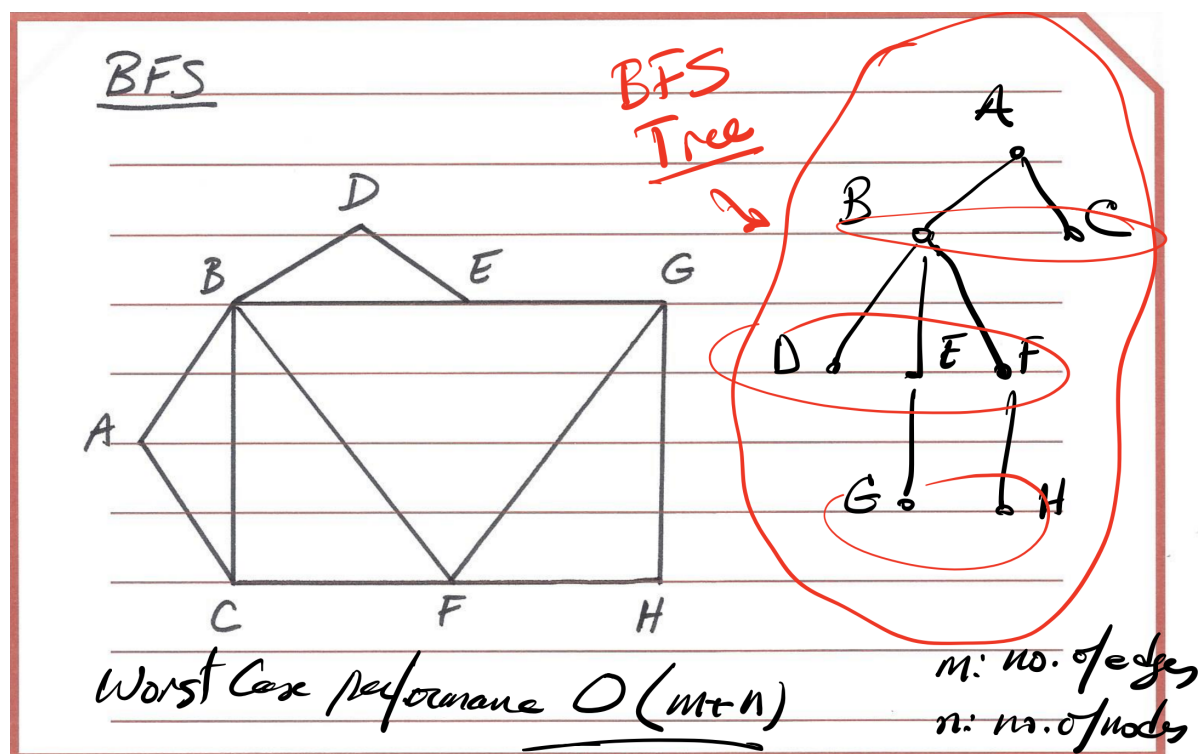 BFS
BFS
Tree
A
B
C
D
E
F
G
H
D
B
E
G
A
C
F
H
Worst Case performance O(m+n)
m: no. of edges
n: no. of nodes